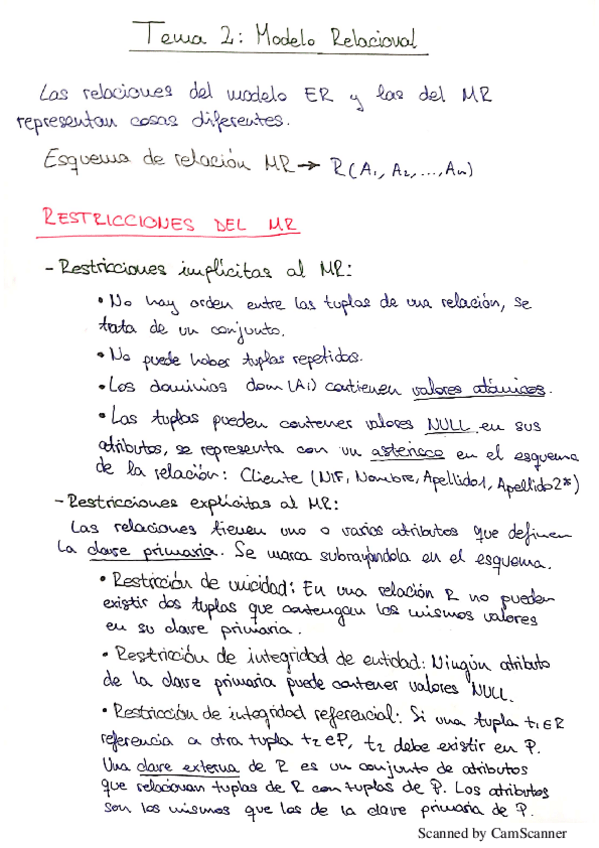 Tema 2: Modelo Relacional
Las relaciones del modelo ER y las del MR
representan cosas diferentes.
Esquema de relación MR → R(A1, A2, ..., An)
RESTRICCIONES DEL MR
- Restricciones implícitas al MR:
• No hay orden entre las tuplas de una relación, se
trata de un conjunto.
• No puede haber tuplas repetidas.
• Los dominios dom(Ai) contienen valores atómicos.
• Las tuplas pueden contener valores NULL en sus
atributos, se representa con un asterisco en el esquema
de la relación: Cliente (NIF, Nombre, Apellido1, Apellido2*)
- Restricciones explícitas al MR:
Las relaciones tienen uno o varios atributos que definen
la clave primaria. Se marca subrayándola en el esquema.
• Restricción de unicidad: En una relación R no pueden
existir dos tuplas que contengan los mismos valores
en su clave primaria.
• Restricción de integridad de entidad: Ningún atributo
de la clave primaria puede contener valores NULL.
• Restricción de integridad referencial: Si una tupla t1∈R
referencia a otra tupla t2∈P, t2 debe existir en P.
Una clave externa de R es un conjunto de atributos
que relacionan tuplas de R con tuplas de P. Los atributos
son los mismos que los de la clave primaria de P.
Scanned by CamScanner